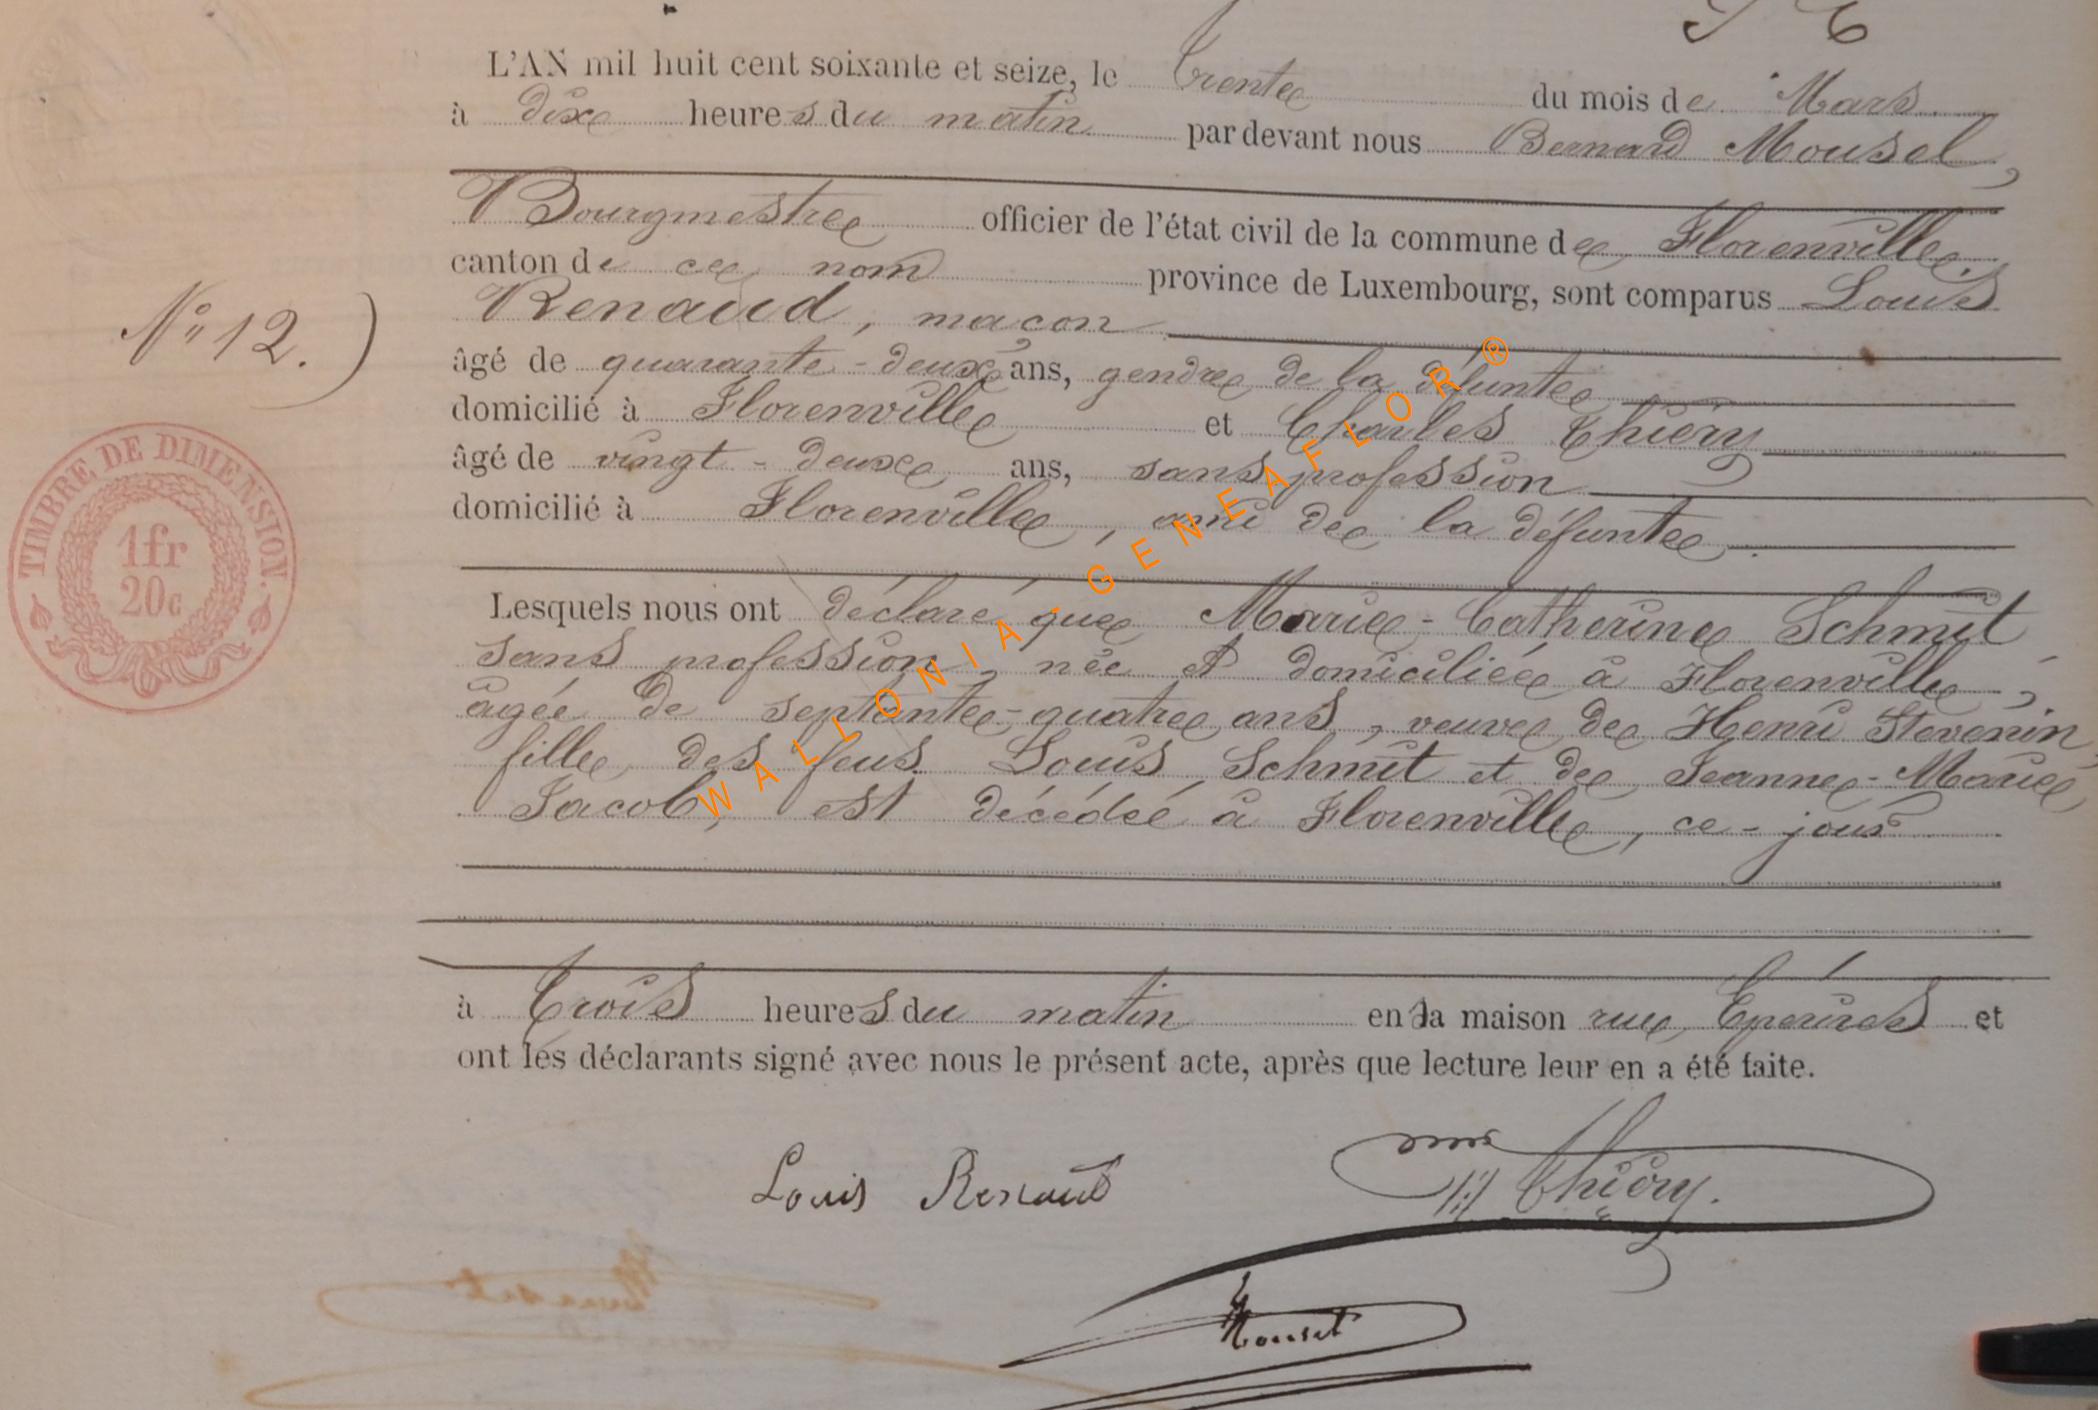 L'AN mil huit cent soixante et seize, le trente du mois de Mars
à dix heures du matin par devant nous Bernard Mousel,
Bourgmestre officier de l'état civil de la commune de Florenville,
canton de ce nom province de Luxembourg, sont comparus Louis
Renaud, maçon
âgé de quarante-deux ans, gendre de la défunte
domicilié à Florenville et Charles Thiéry
âgé de vingt-deux ans, sans profession
domicilié à Florenville, ami de la défunte
Lesquels nous ont déclaré que Marie-Catherine Schmit
sans profession, née et domiciliée à Florenville,
âgée de septante-quatre ans, veuve de Henri Stevenin,
fille des feus Louis Schmit et de Jeanne-Marie
Jacob, est décédée à Florenville, ce-jour
à Trois heures du matin en sa maison rue Épérires et
ont les déclarants signé avec nous le présent acte, après que lecture leur en a été faite.
N° 12.)
TIMBRE DE DIMENSION.
1fr
20c
Louis Renaud
Thiéry.
Mousel
WALLONIA - GENEAFLOR®